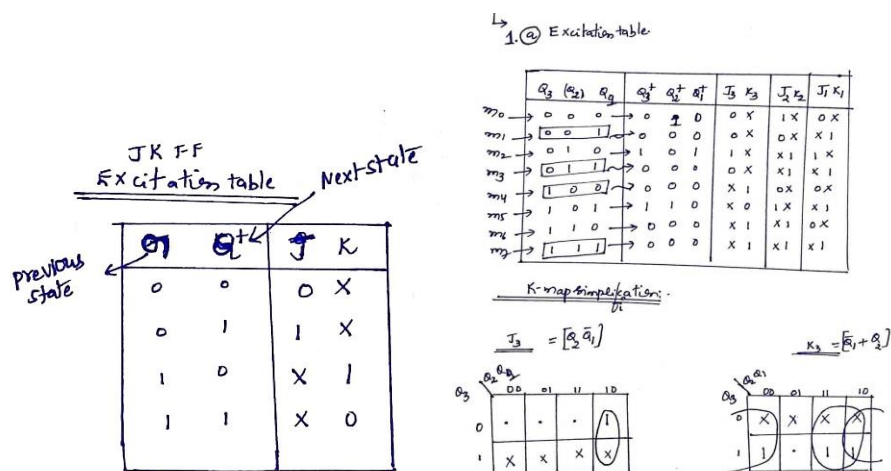 JK FF
Excitation table
Next state
Previous state
Q Q⁺ J K
0 0 0 X
0 1 1 X
1 0 X 1
1 1 X 0
↳
1. ⓐ Excitation table
Q₃ (Q₂) Q₃⁺ Q₂⁺ Q₁⁺ J₃ K₃ J₂ K₂ J₁ K₁
m0 → 0 0 0 → 0 1 0 0 X 1X 0X
m1 → 0 0 1 → 0 0 0 0 X 0X X1
m2 → 0 1 0 → 1 0 1 1 X X1 1X
m3 → 0 1 1 → 0 0 0 0 X X1 X1
m4 → 1 0 0 → 0 0 0 X 1 0X 0X
m5 → 1 0 1 → 1 1 0 X 0 1X X1
m6 → 1 1 0 → 0 0 0 X 1 X1 0X
m7 → 1 1 1 → 0 0 0 X 1 X1 X1
K-map simplification:
J₃ = [Q₂ Q̄₁]
K₃ = [Q̄₁ + Q₂]
Q₃ 00 01 11 10
0 . . . 1
1 X X X X
Q₃ Q₂Q₁ 00 01 11 10
0 X X X X
1 1 . 1 1